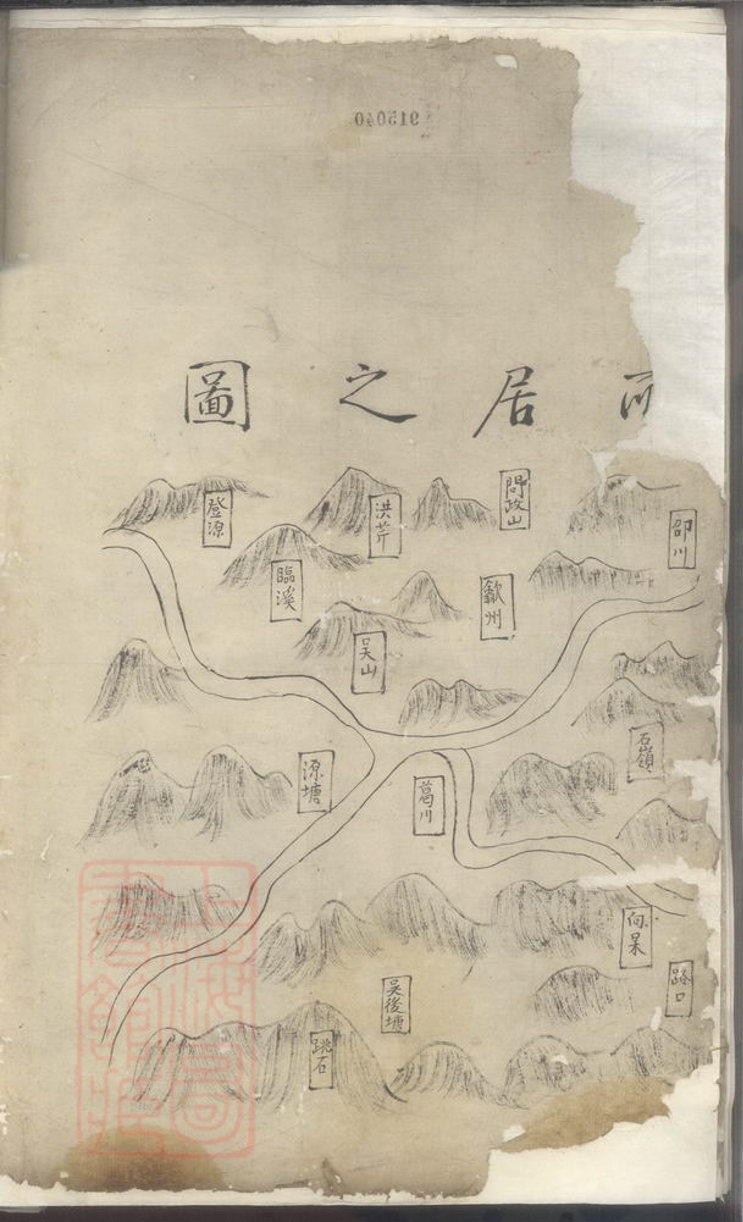 915040
所居之圖
邵川
問政山
洪芹
登源
臨溪
歙州
吳山
石嶺
葛川
源塘
向杲
路口
吳後塘
跳石